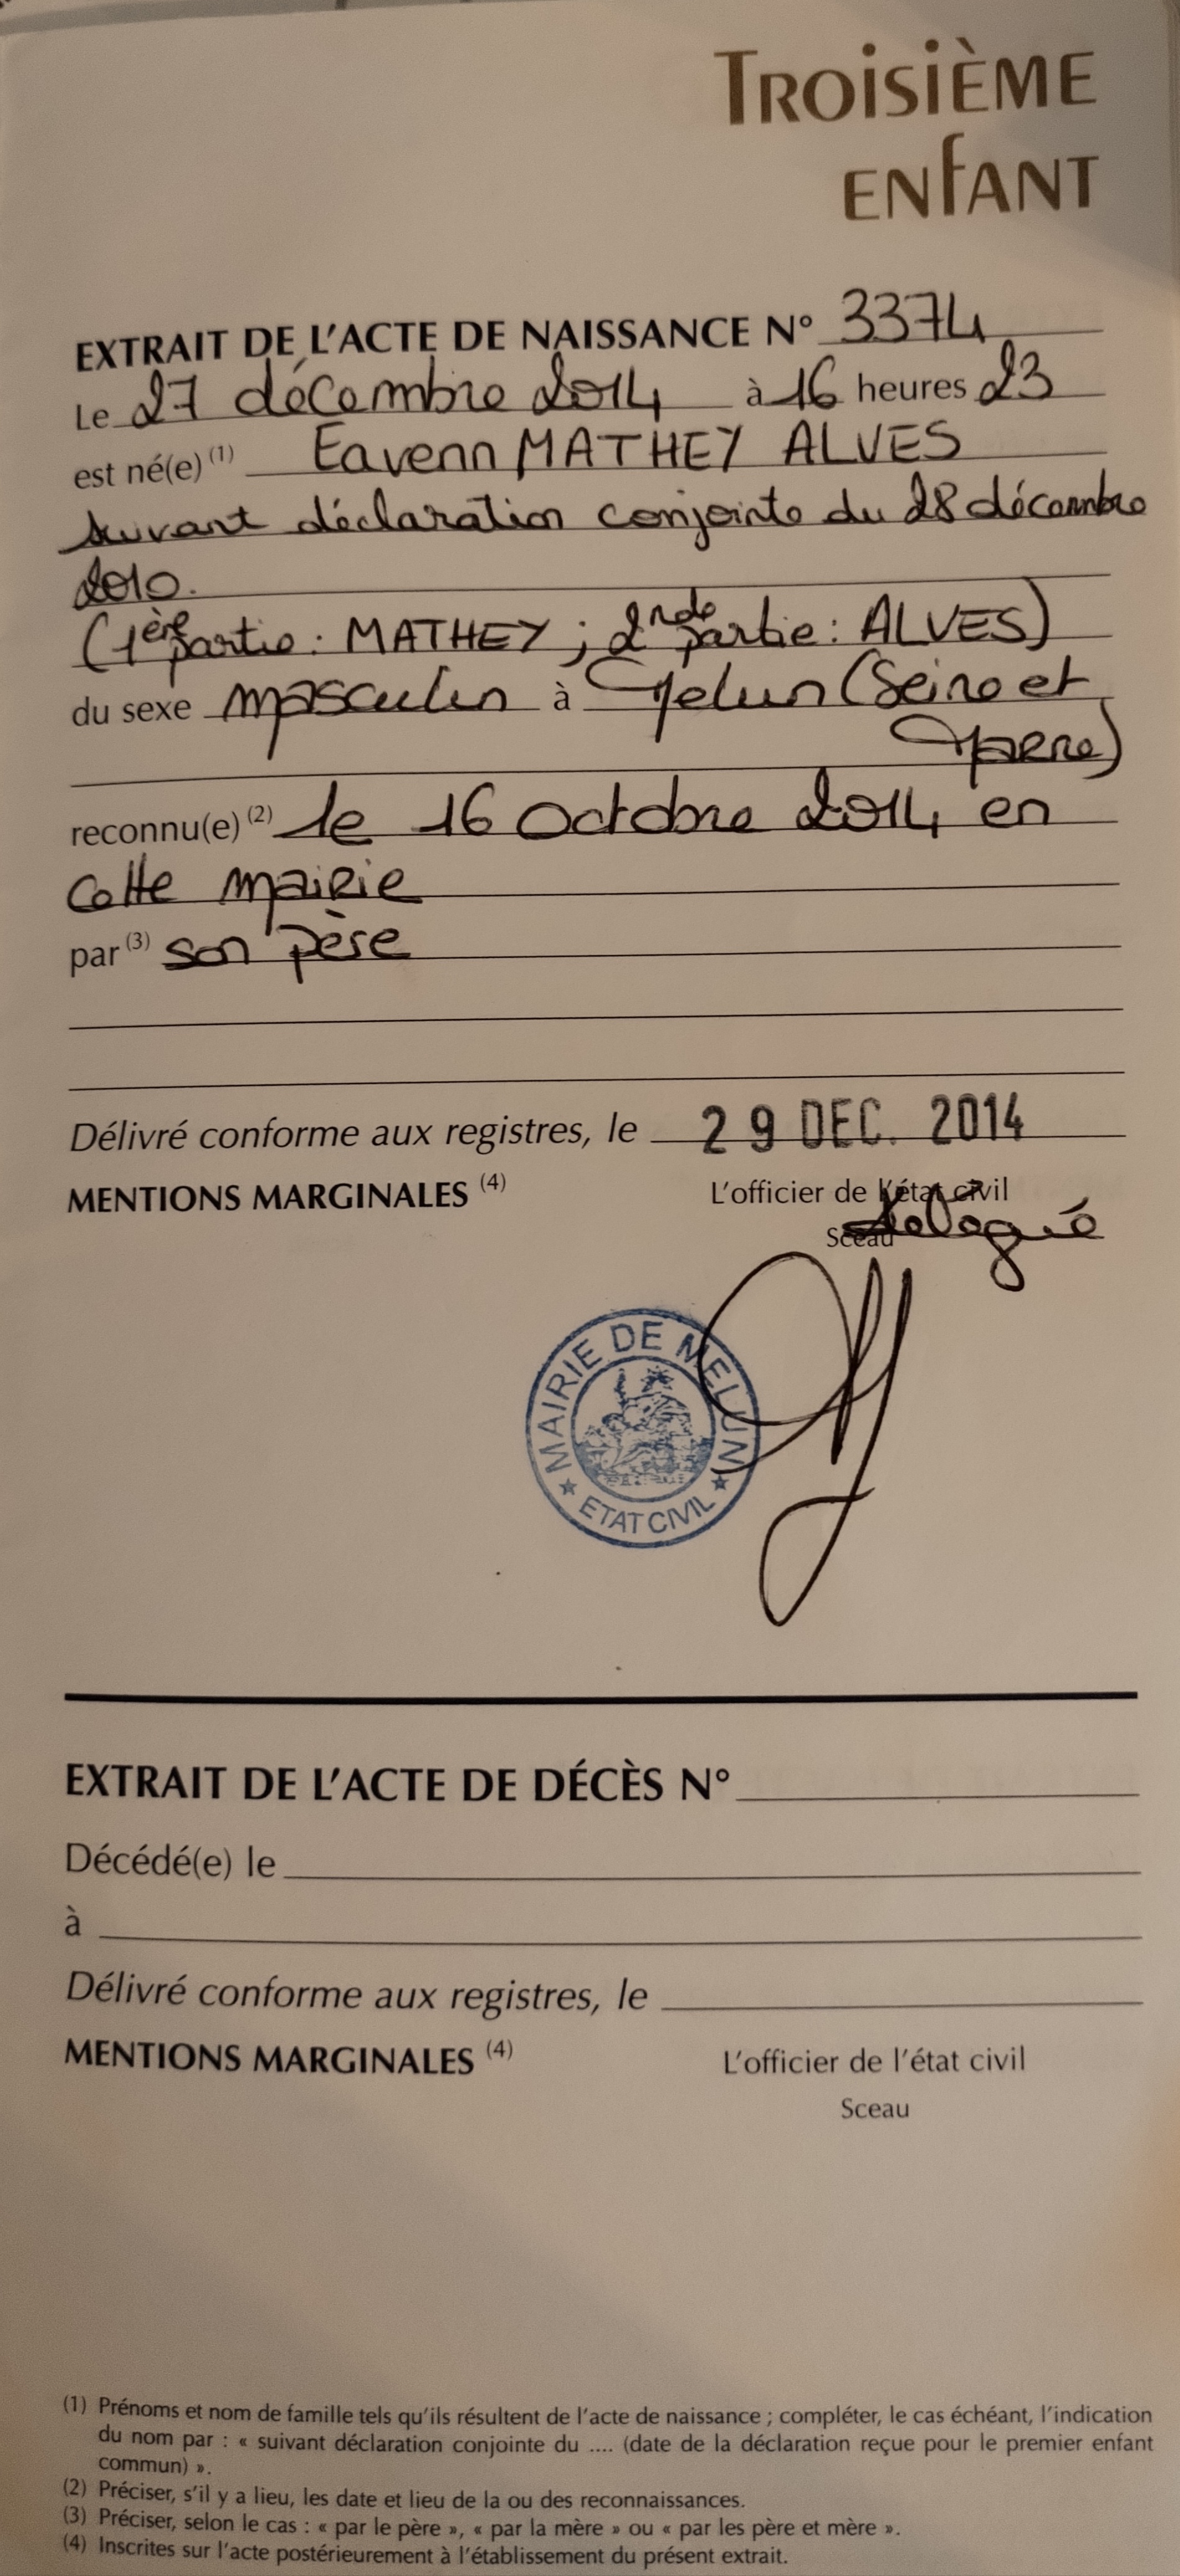 TROISIÈME
ENFANT
EXTRAIT DE L'ACTE DE NAISSANCE N° 3374
Le 27 décembre 2014 à 16 heures 23
est né(e) (1) Eavenn MATHEY ALVES
suivant déclaration conjointe du 28 décembre
2010.
(1ère partie : MATHEY ; 2nde partie : ALVES)
du sexe masculin à Melun (Seine et
Marne)
reconnu(e) (2) le 16 Octobre 2014 en
cette mairie
par (3) son père
Délivré conforme aux registres, le 29 DEC. 2014
MENTIONS MARGINALES (4) L'officier de l'état civil
délégué
Sceau
MAIRIE DE MELUN
ETAT CIVIL
EXTRAIT DE L'ACTE DE DÉCÈS N°
Décédé(e) le
à
Délivré conforme aux registres, le
MENTIONS MARGINALES (4) L'officier de l'état civil
Sceau
(1) Prénoms et nom de famille tels qu'ils résultent de l'acte de naissance ; compléter, le cas échéant, l'indication
du nom par : « suivant déclaration conjointe du .... (date de la déclaration reçue pour le premier enfant
commun) ».
(2) Préciser, s'il y a lieu, les date et lieu de la ou des reconnaissances.
(3) Préciser, selon le cas : « par le père », « par la mère » ou « par les père et mère ».
(4) Inscrites sur l'acte postérieurement à l'établissement du présent extrait.